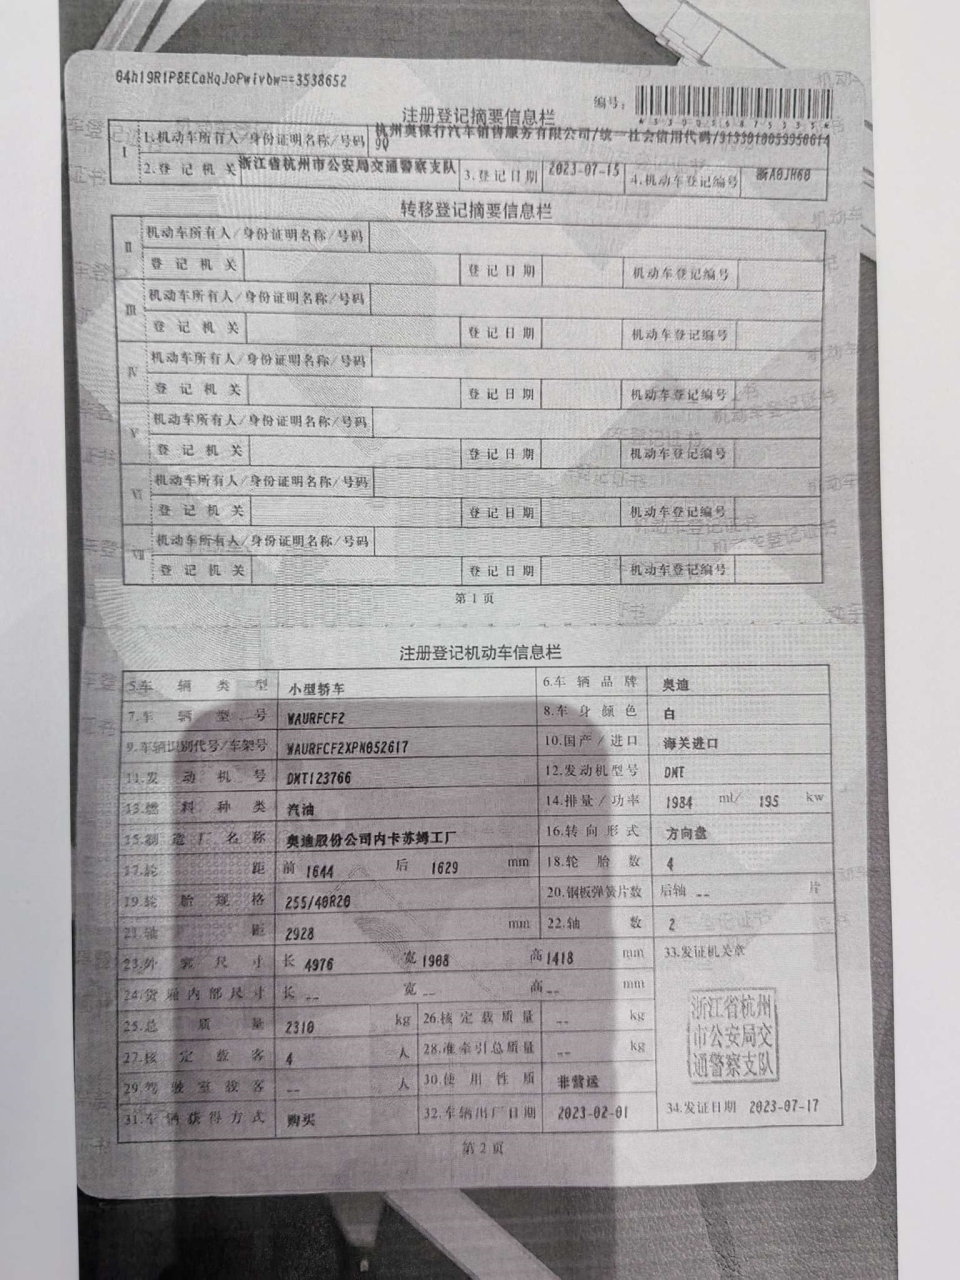 04h19R1P8ECaHqJoPwivbw==3538652
编号:
注册登记摘要信息栏
I 1.机动车所有人/身份证明名称/号码 杭州奥保行汽车销售服务有限公司/统一社会信用代码/9133010059956614
9Q
2.登记机关 浙江省杭州市公安局交通警察支队 3.登记日期 2023-07-15 4.机动车登记编号 浙A0JH60
转移登记摘要信息栏
II 机动车所有人/身份证明名称/号码
登记机关 登记日期 机动车登记编号
III 机动车所有人/身份证明名称/号码
登记机关 登记日期 机动车登记编号
IV 机动车所有人/身份证明名称/号码
登记机关 登记日期 机动车登记编号
V 机动车所有人/身份证明名称/号码
登记机关 登记日期 机动车登记编号
VI 机动车所有人/身份证明名称/号码
登记机关 登记日期 机动车登记编号
VII 机动车所有人/身份证明名称/号码
登记机关 登记日期 机动车登记编号
第1页
注册登记机动车信息栏
5.车辆类型 小型轿车 6.车辆品牌 奥迪
7.车辆型号 WAURFCF2 8.车身颜色 白
9.车辆识别代号/车架号 WAURFCF2XPN052617 10.国产/进口 海关进口
11.发动机号 DMT123766 12.发动机型号 DMT
13.燃料种类 汽油 14.排量/功率 1984 ml/ 195 kw
15.制造厂名称 奥迪股份公司内卡苏姆工厂 16.转向形式 方向盘
17.轮距 前 1644 后 1629 mm 18.轮胎数 4
19.轮胎规格 255/40R20 20.钢板弹簧片数 后轴 -- 片
21.轴距 2928 mm 22.轴数 2
23.外廓尺寸 长 4976 宽 1908 高 1418 mm 33.发证机关章
24.货厢内部尺寸 长 -- 宽 -- 高 -- mm
25.总质量 2310 kg 26.核定载质量 -- kg
浙江省杭州
市公安局交
通警察支队
27.核定载客 4 人 28.准牵引总质量 -- kg
29.驾驶室载客 -- 人 30.使用性质 非营运
31.车辆获得方式 购买 32.车辆出厂日期 2023-02-01 34.发证日期 2023-07-17
第2页